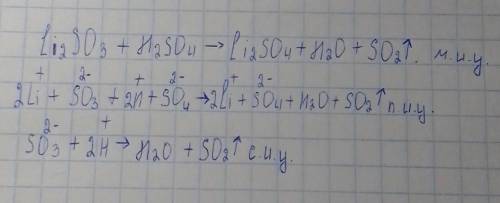 Li₂SO₃ + H₂SO₄ → Li₂SO₄ + H₂O + SO₂↑. м.и.у.
2Li⁺ + SO₃²⁻ + 2H⁺ + SO₄²⁻ → 2Li⁺ + SO₄²⁻ + H₂O + SO₂↑ п.и.у.
SO₃²⁻ + 2H⁺ → H₂O + SO₂↑ с.и.у.